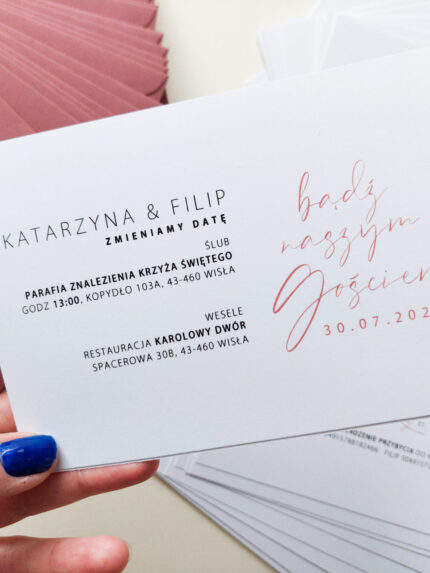 KATARZYNA & FILIP
ZMIENIAMY DATĘ
ŚLUB
PARAFIA ZNALEZIENIA KRZYŻA ŚWIĘTEGO
GODZ 13:00, KOPYDŁO 103A, 43-460 WISŁA
WESELE
RESTAURACJA KAROLOWY DWÓR
SPACEROWA 30B, 43-460 WISŁA
bądź
naszym
Gościem
30.07.202
PRZYBYCIA DO
FILIP